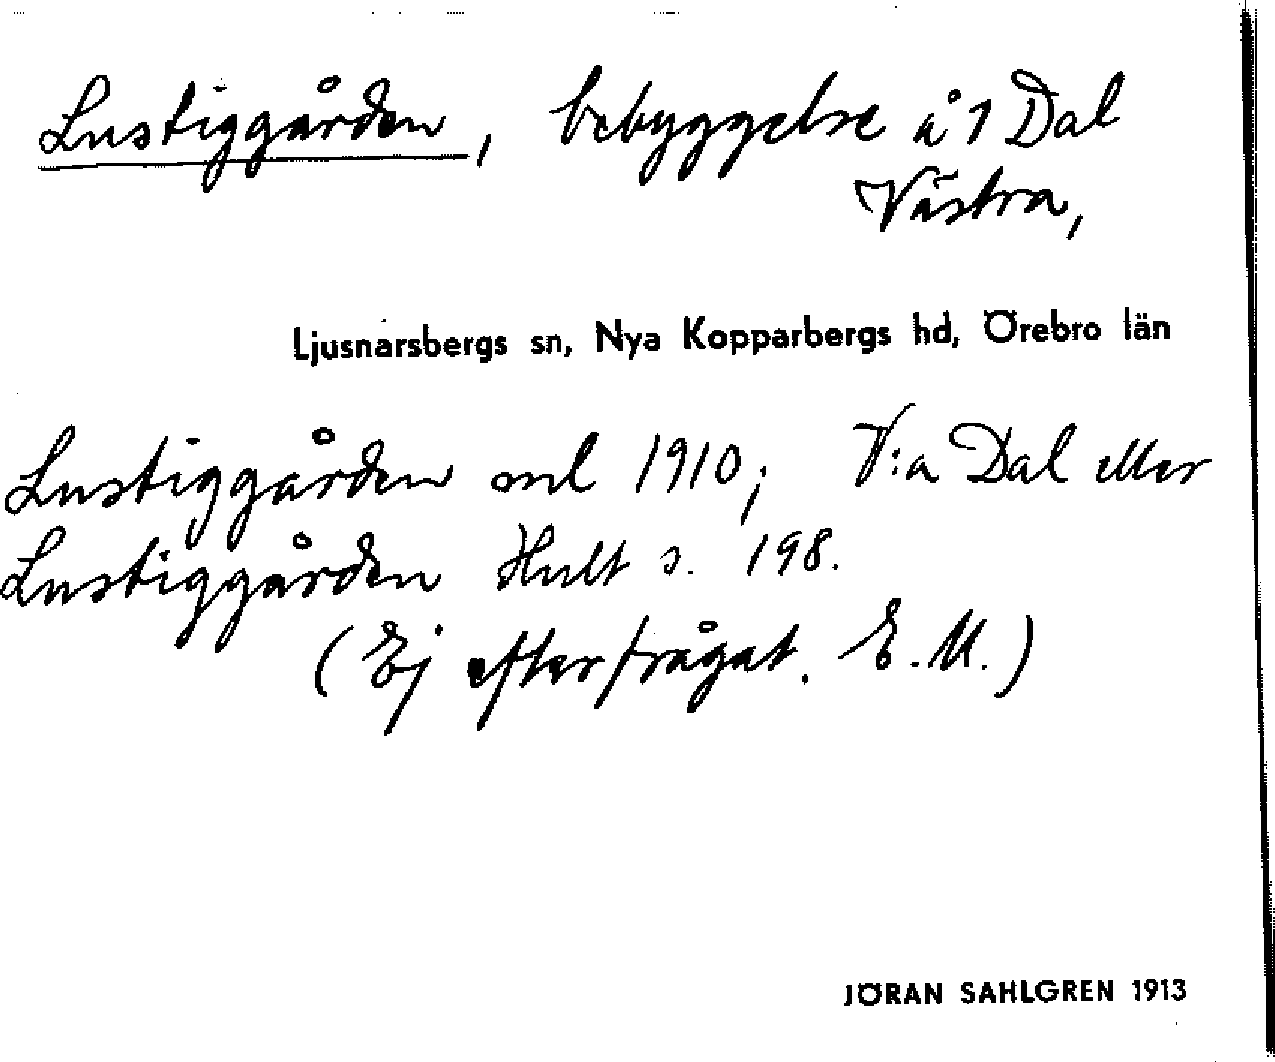 Lustiggården, bebyggelse å 1 Dal
Västra,
Ljusnarsbergs sn, Nya Kopparbergs hd, Örebro län
Lustiggården ml 1910; V:a Dal eller
Lustiggården Hult s. 198.
(Ej efterfrågat. E.M.)
JÖRAN SAHLGREN 1913